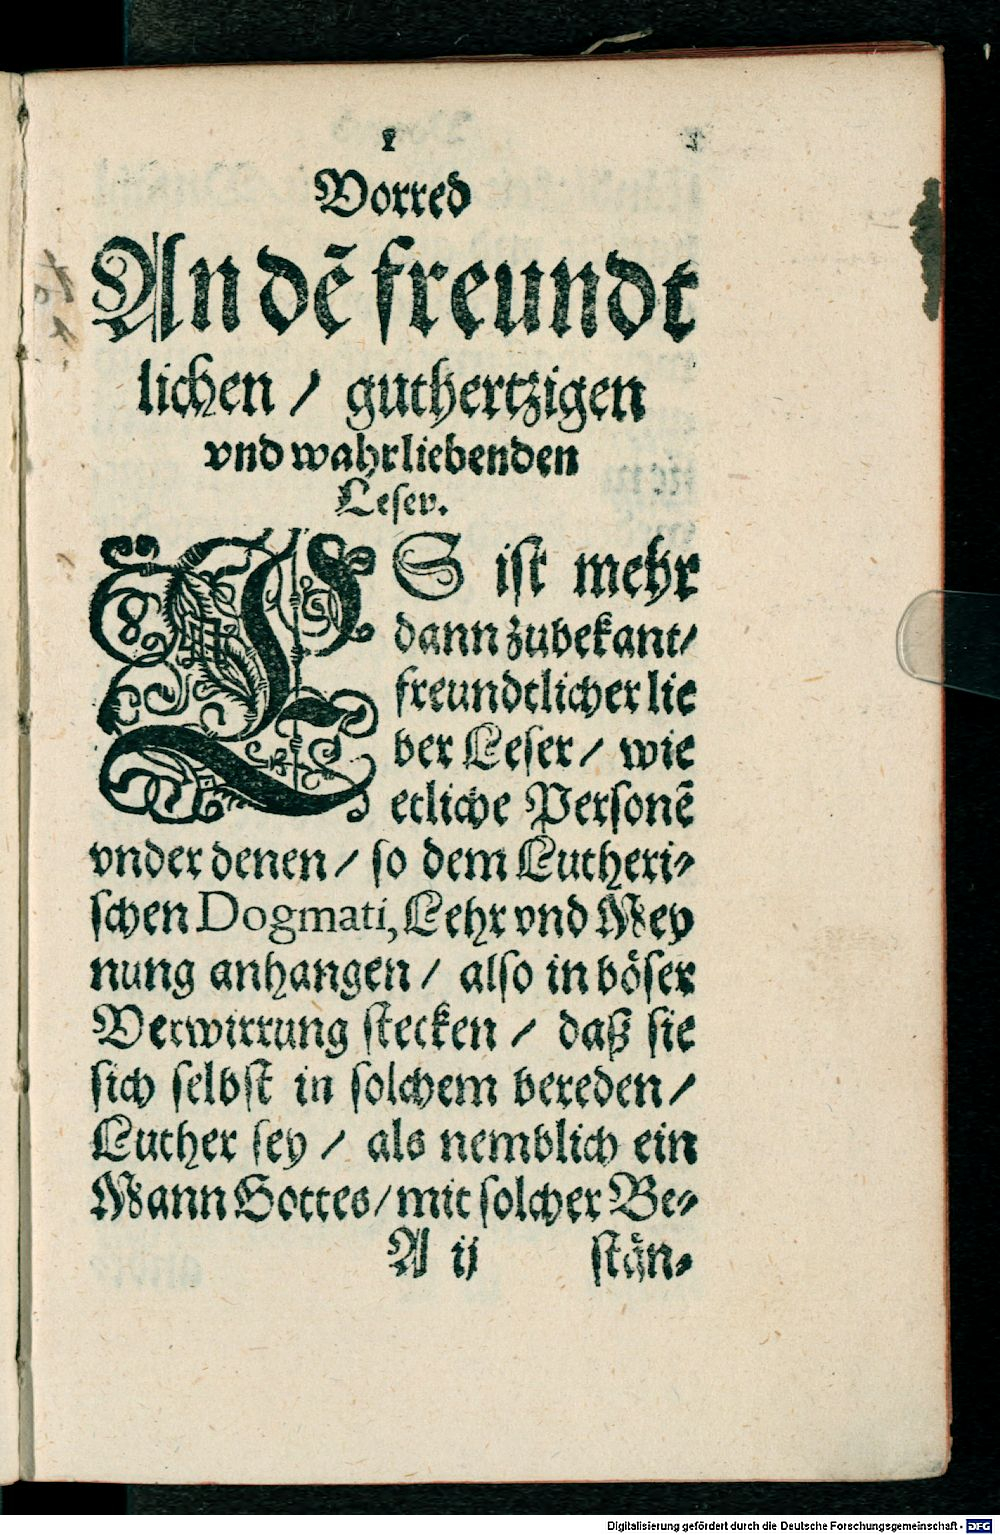 Vorred
An dẽ freundt
lichen / guthertzigen
vnd wahrliebenden
Leser.
ES ist mehr
dann zubekant/
freundtlicher lie
ber Leser / wie
etliche Personẽ
vnder denen / so dem Lutheri⸗
schen Dogmati, Lehr vnd Mey
nung anhangen / also in böser
Verwirrung stecken / daß sie
sich selbst in solchem bereden /
Luther sey / als nemblich ein
Mann Gottes / mit solcher Be⸗
A ij stän⸗
Digitalisierung gefördert durch die Deutsche Forschungsgemeinschaft - DFG